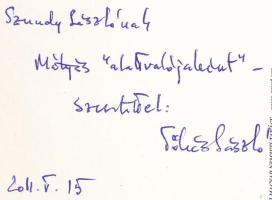 Szundy Lászlónak
Mátyás "alattvalójaként" –
szeretettel:
Tőkés László
2011. V. 15